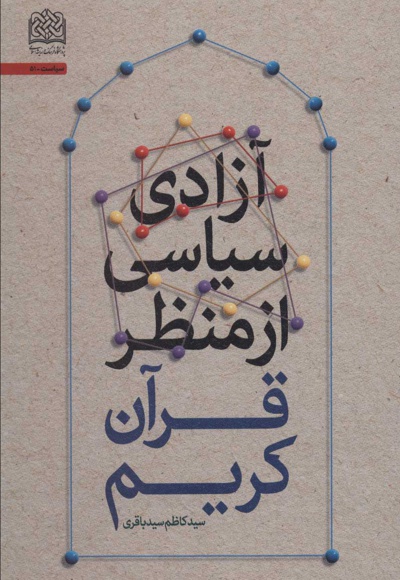 سیاست ۵۱۰
آزادی
سیاسی
از منظر
قرآن
کریم
سید کاظم سید باقری